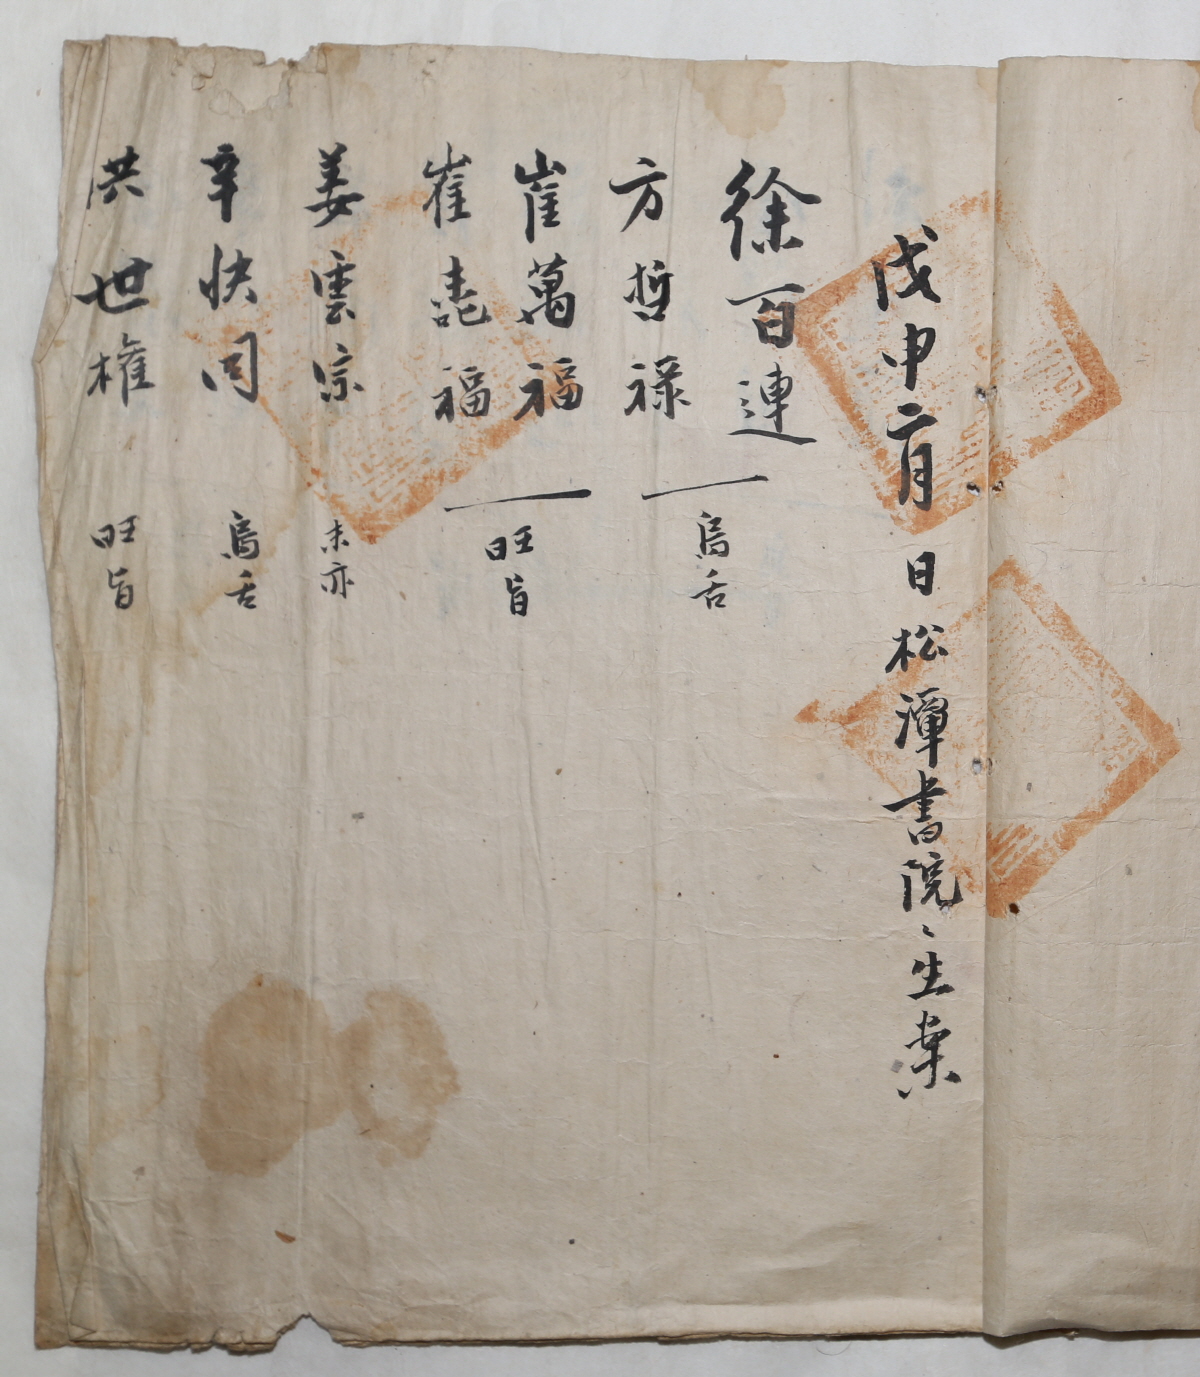 戊申二月 日松潭書院〻生案
徐百連
方哲祿
烏舌
崔萬福
崔喆福
旺旨
姜雲宗 未亦
辛快同 烏舌
洪世權 旺旨